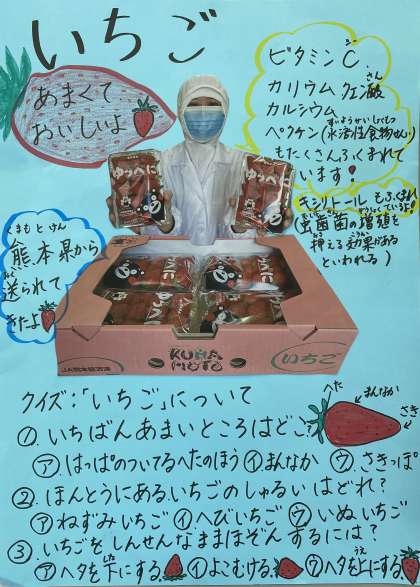 いちご
あまくて
おいしいよ
ビタミンC
カリウム クエン酸
さん
カルシウム
ペクチン(水溶性食物せんい)
もたくさんふくまれて
います!
キシリトールもふくまれ
(虫歯菌の増殖を
抑える効果がある
といわれる)
くまもとけん
熊本県から
おく
送られて
きたよ
ゆうべに
ゆうべに
KUMA
MOTO
いちご
JA熊本経済連
クイズ:「いちご」について
へた
まんなか
さき
①.いちばんあまいところはどこ?
㋐.はっぱのついてるへたのほう ㋑まんなか ㋒.さきっぽ
②.ほんとうにあるいちごのしゅるいはどれ?
㋐ねずみいちご ㋑へびいちご ㋒いぬいちご
③.いちごをしんせんなままほぞんするには?
した
うえ
㋐ヘタを下にする ㋑よこむける ㋒ヘタを上にする